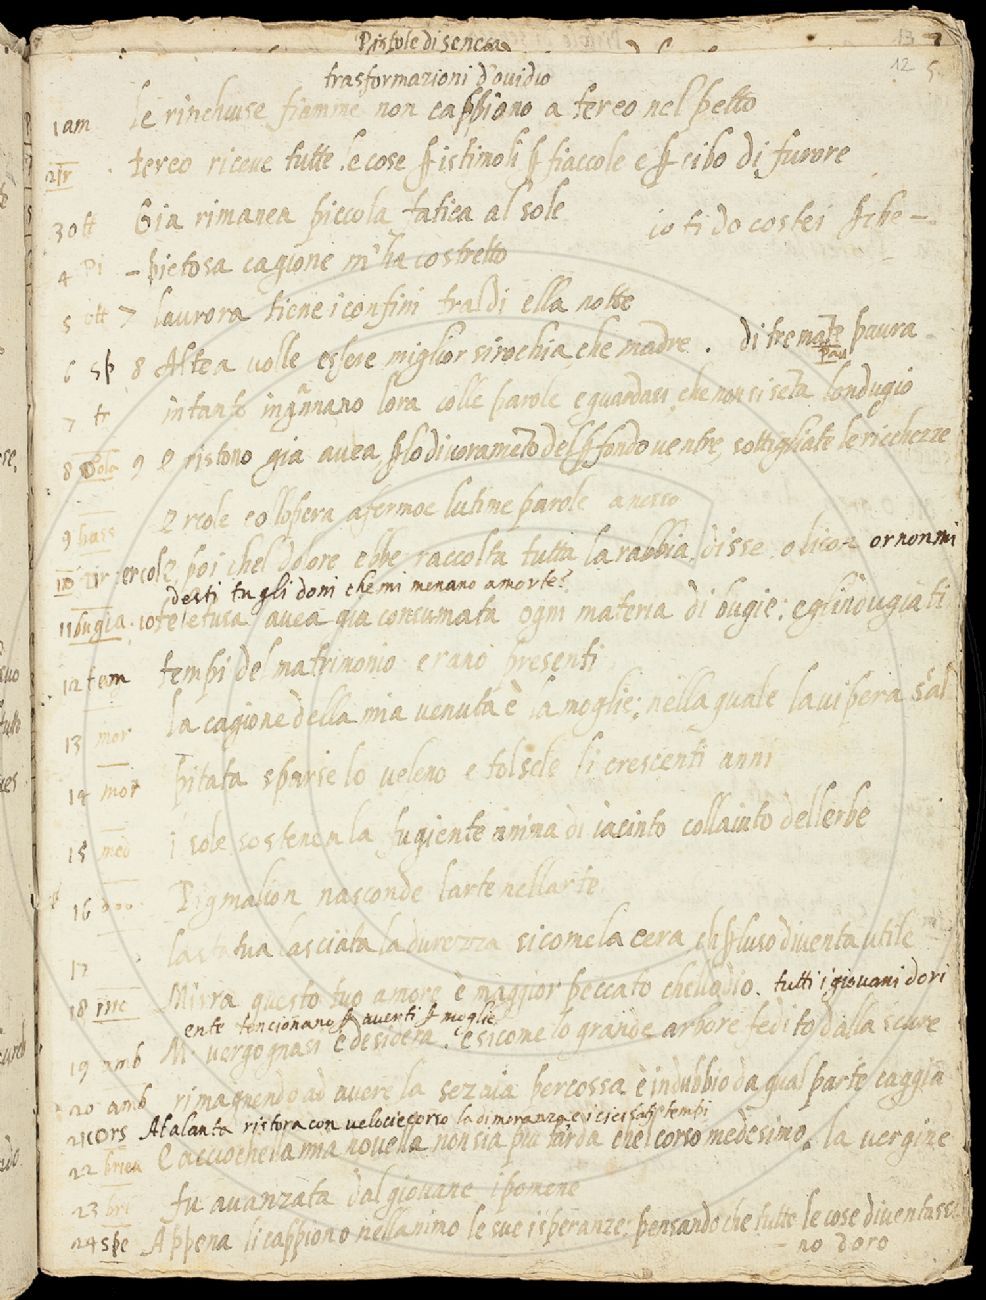 Pistole di seneca
13
12 5
trasformazioni d'ovidio
1 am le rinchiuse fiamme non cappiono a tereo nel petto
2 ir tereo riceve tutte le cose p istimoli p fiaccole e p cibo di furore
3 ott Gia rimanea piccola fatica al sole io ti do costei p che –
4 Pi – pietosa cagione m'ha costretto
5 ott 7 laurora tiene i confini tral di ella notte
6 sp 8 Altea volle essere miglior sirochia che madre . di tremate paura
pau
7 tr intanto ingannano lora colle parole e guardasi che non si seta londugio
8 gola 9 Eristono gia avea p lo divorameto del pfondo ventre sottigliate le ricchezze
9 bass Ercole collopera afermoe lutime parole
10 ir ercole poi chel dolore ebbe raccolta tutta la rabbia disse o licon or non mi
desti tu gli doni che mi menano a morte?
11 bugia 10 teletusa avea gia consumata ogni materia di bugie: e gli ndugiati
12 tem tempi del matrimonio erano presenti
13 mor la cagione della mia venuta è la moglie: nella quale la vipera scal
14 mor pitata sparse lo veleno e tolsele li crescenti anni
15 med i sole sostenea la fugiente anima di iacinto collaiuto dellerbe
16 Pigmalion nasconde larte nellarte
17 la statua lasciata la durezza si come la cera ch p luso diventa utile
18 Mirra questo tuo amore è maggior peccato chellodio. tutti i giovani dori
ente tencionano p averti p moglie
19 amb M. vergognasi e desidera. e si come lo grande arbore fedito dalla scure
20 amb rimagnendo ad avere la sezaia percossa è in dubbio da qual parte caggia
21 cors Atalanta ristora con veloce corso la dimoranza
22 E accioche la mia novella non sia piu tarda chel corso medesimo, la vergine
23 bri fu avanzata dal giovane ipomene
24 spe Appena li cappiono nellanimo le sue isperanze: pensando che tutte le cose diventasse
– no d oro